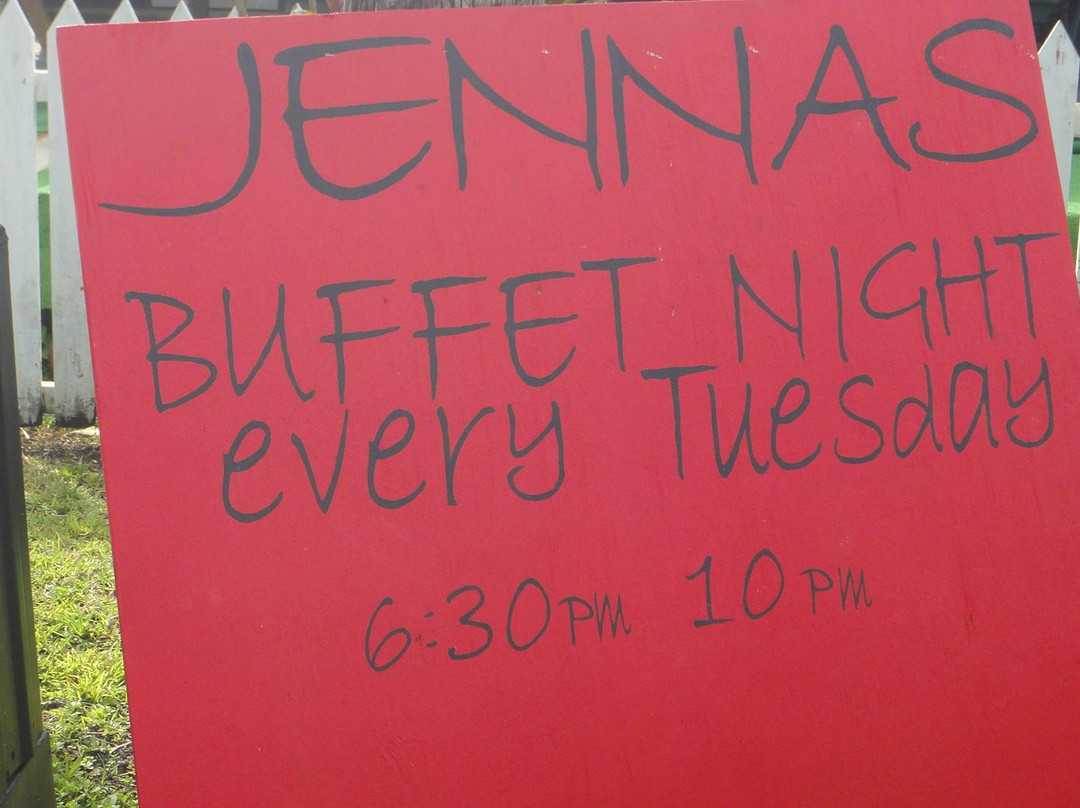 JENNAS
BUFFET NIGHT
every Tuesday
6:30PM 10PM